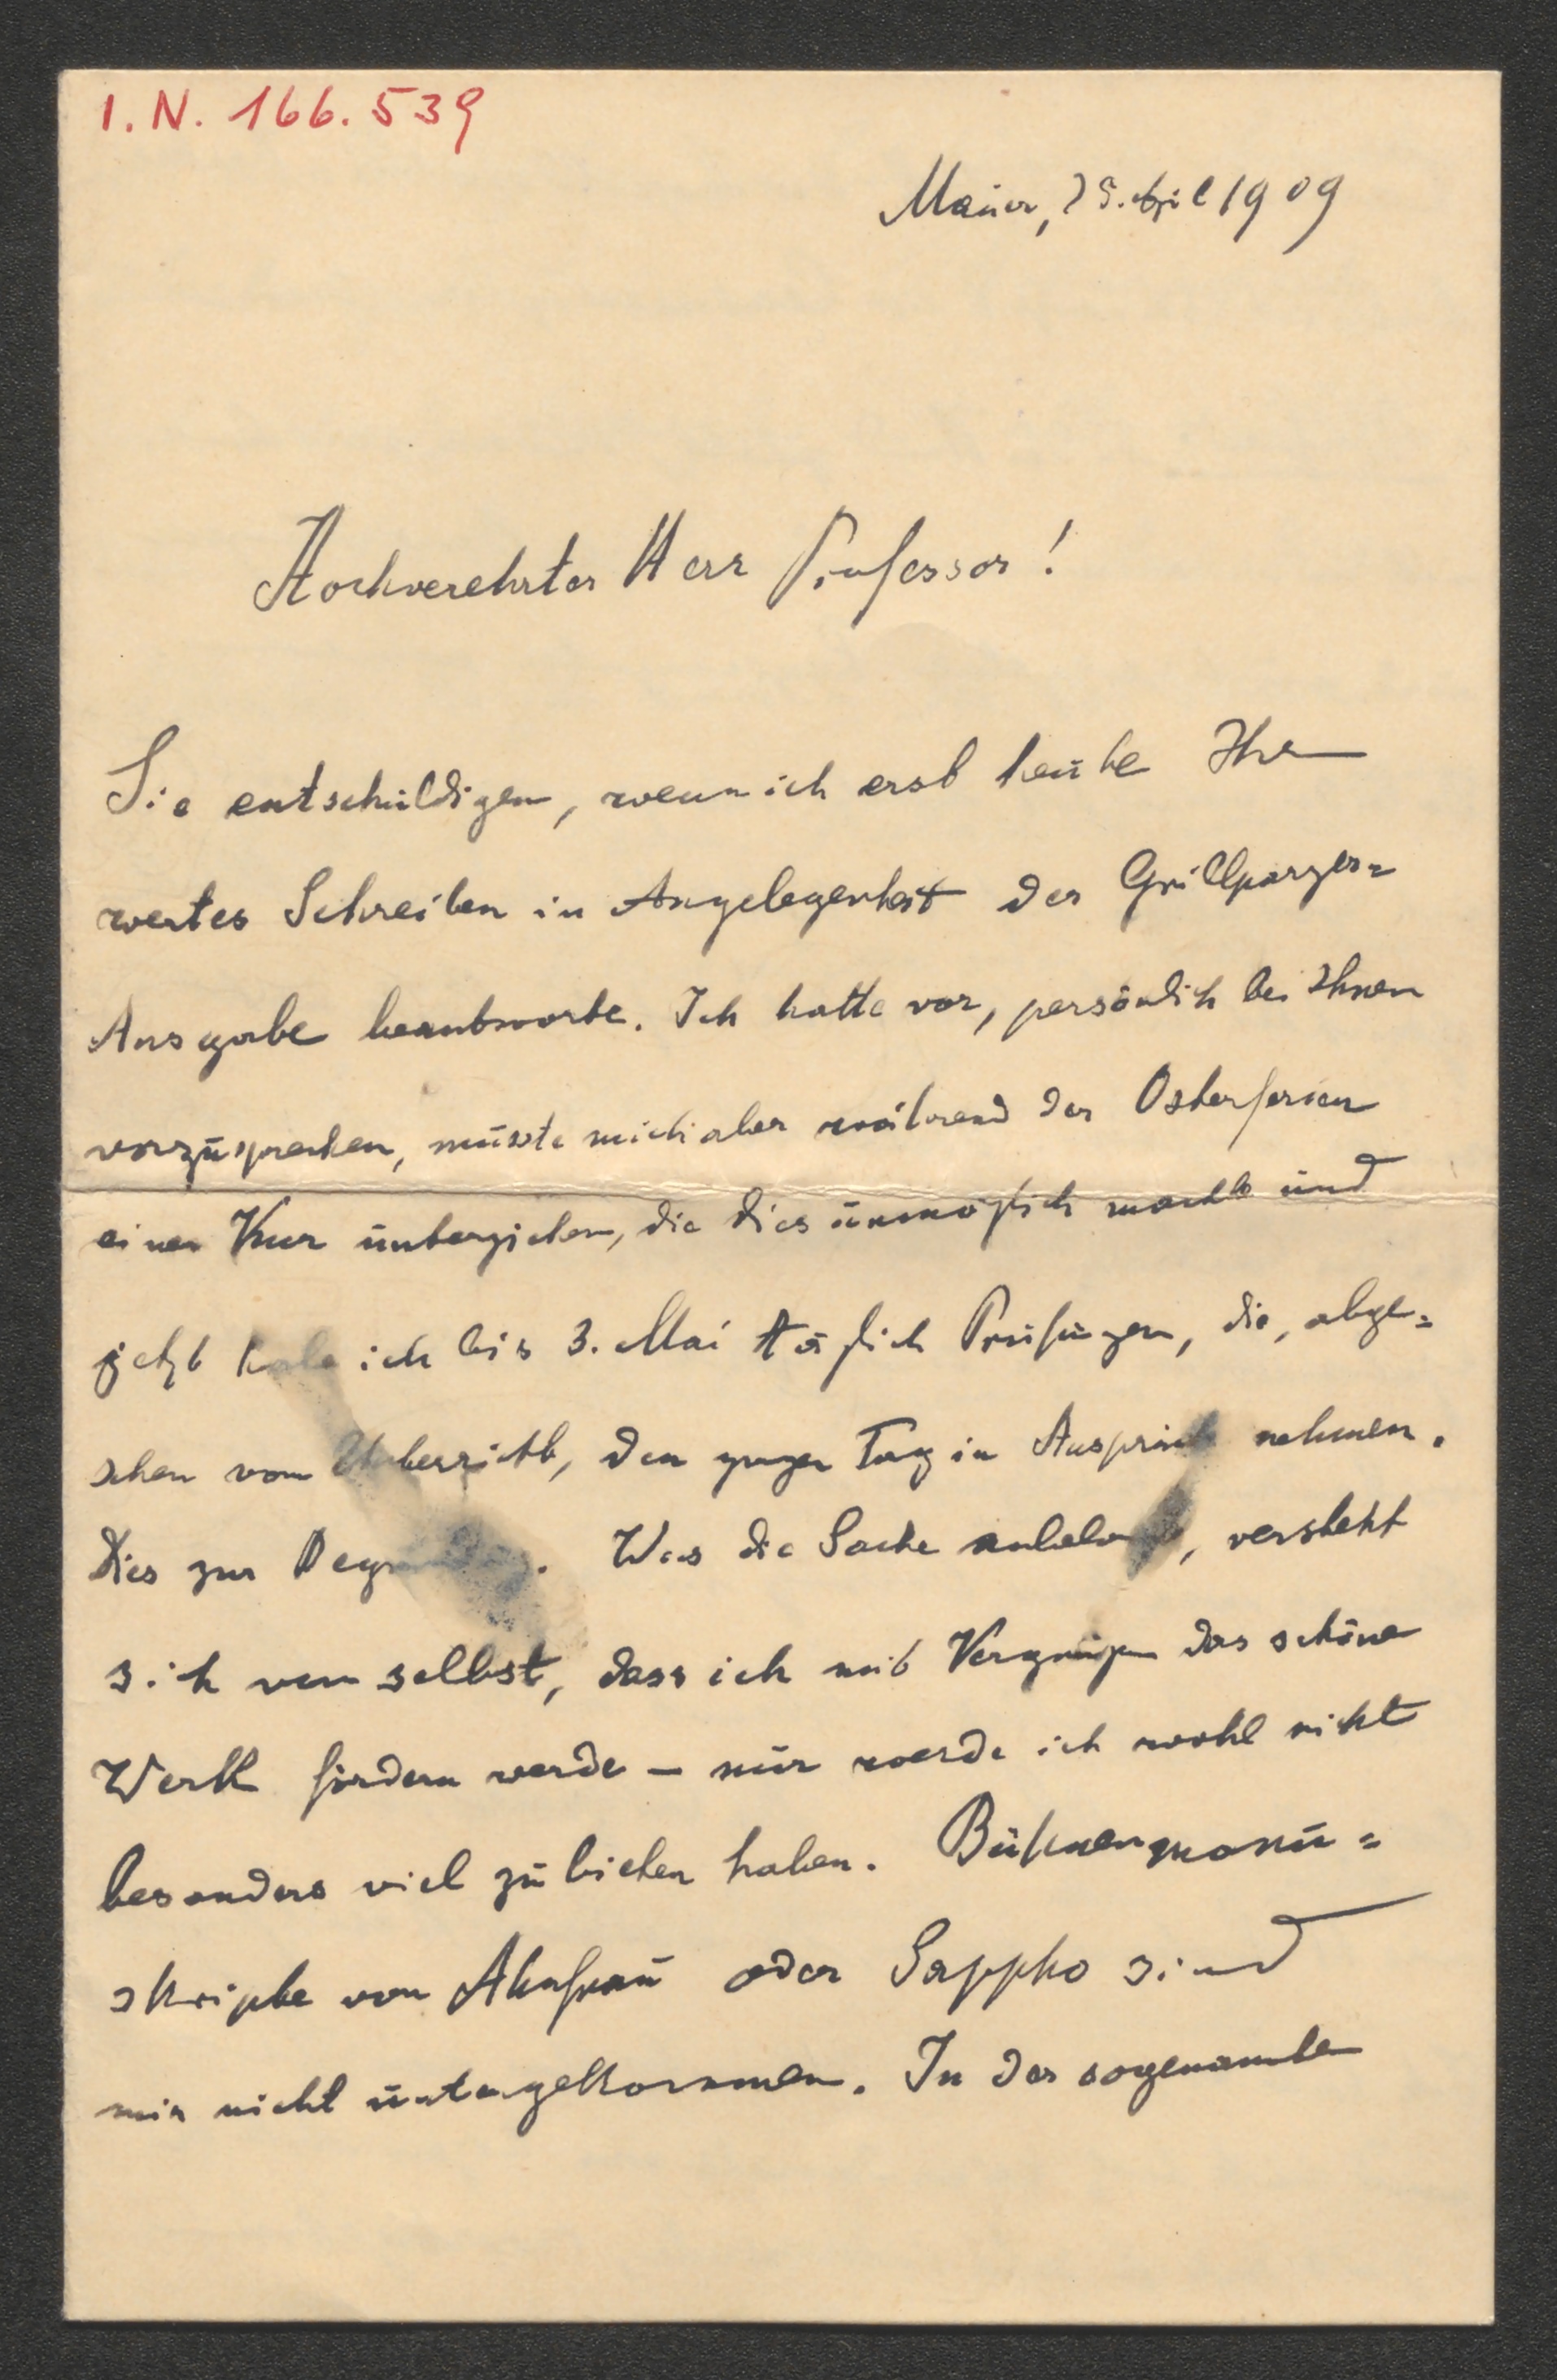 I. N. 166.539
Mauer, 25. April 1909
Hochverehrter Herr Professor!
Sie entschuldigen, wenn ich erst heute Ihr
wertes Schreiben in Angelegenheit der Grillparzer=
Ausgabe beantworte. Ich hatte vor, persönlich bei Ihnen
vorzusprechen, musste mich aber während der Osterferien
einer Kur unterziehen, die dies unmöglich machte und
jetzt habe ich bis 3. Mai täglich Prüfungen, die, abge=
sehen vom Unterricht, den ganzen Tag in Anspruch nehmen.
Dies zur Begründung. Was die Sache anbelangt, versteht
sich von selbst, dass ich mit Vergnügen das schöne
Werk fördern werde – nur werde ich wohl nicht
besonders viel zu bieten haben. Bühnenmanu=
skripte von Ahnfrau oder Sappho sind
mir nicht untergekommen. In der sogenannten